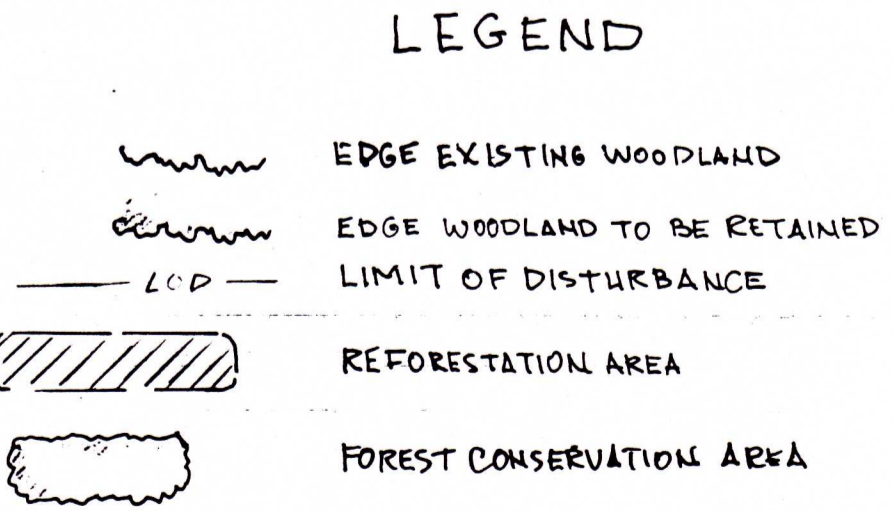 LEGEND
EDGE EXISTING WOODLAND
EDGE WOODLAND TO BE RETAINED
LOD LIMIT OF DISTURBANCE
REFORESTATION AREA
FOREST CONSERVATION AREA